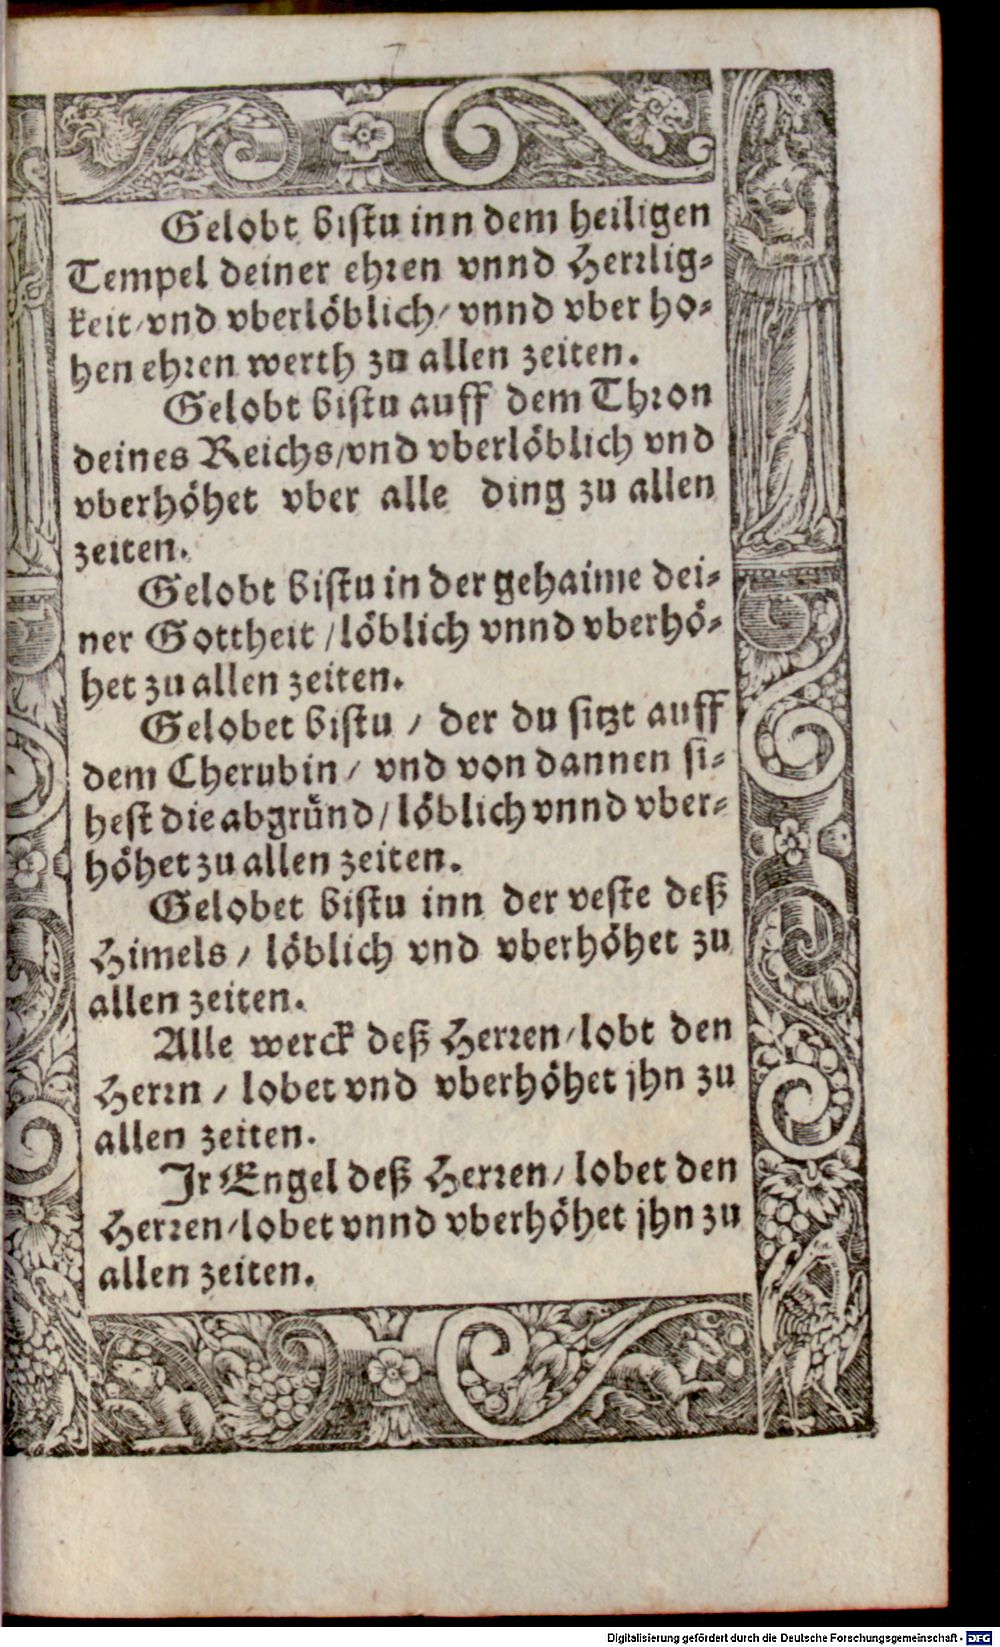 Gelobt bistu inn dem heiligen
Tempel deiner ehren vnnd Herrlig-
keit/vnd vberlöblich/ vnnd vber ho-
hen ehren werth zu allen zeiten.
Gelobt bistu auff dem Thron
deines Reichs/vnd vberlöblich vnd
vberhöhet vber alle ding zu allen
zeiten.
Gelobt bistu in der gehaime dei-
ner Gottheit /löblich vnnd vberhö-
het zu allen zeiten.
Gelobet bistu / der du sitzt auff
dem Cherubin/ vnd von dannen si-
hest die abgründ/ löblich vnnd vber-
höhet zu allen zeiten.
Gelobet bistu inn der veste deß
Himels / löblich vnd vberhöhet zu
allen zeiten.
Alle werck deß Herren/lobt den
Herrn / lobet vnd vberhöhet jhn zu
allen zeiten.
Jr Engel deß Herren/ lobet den
Herren/lobet vnnd vberhöhet jhn zu
allen zeiten.
Digitalisierung gefördert durch die Deutsche Forschungsgemeinschaft - DFG